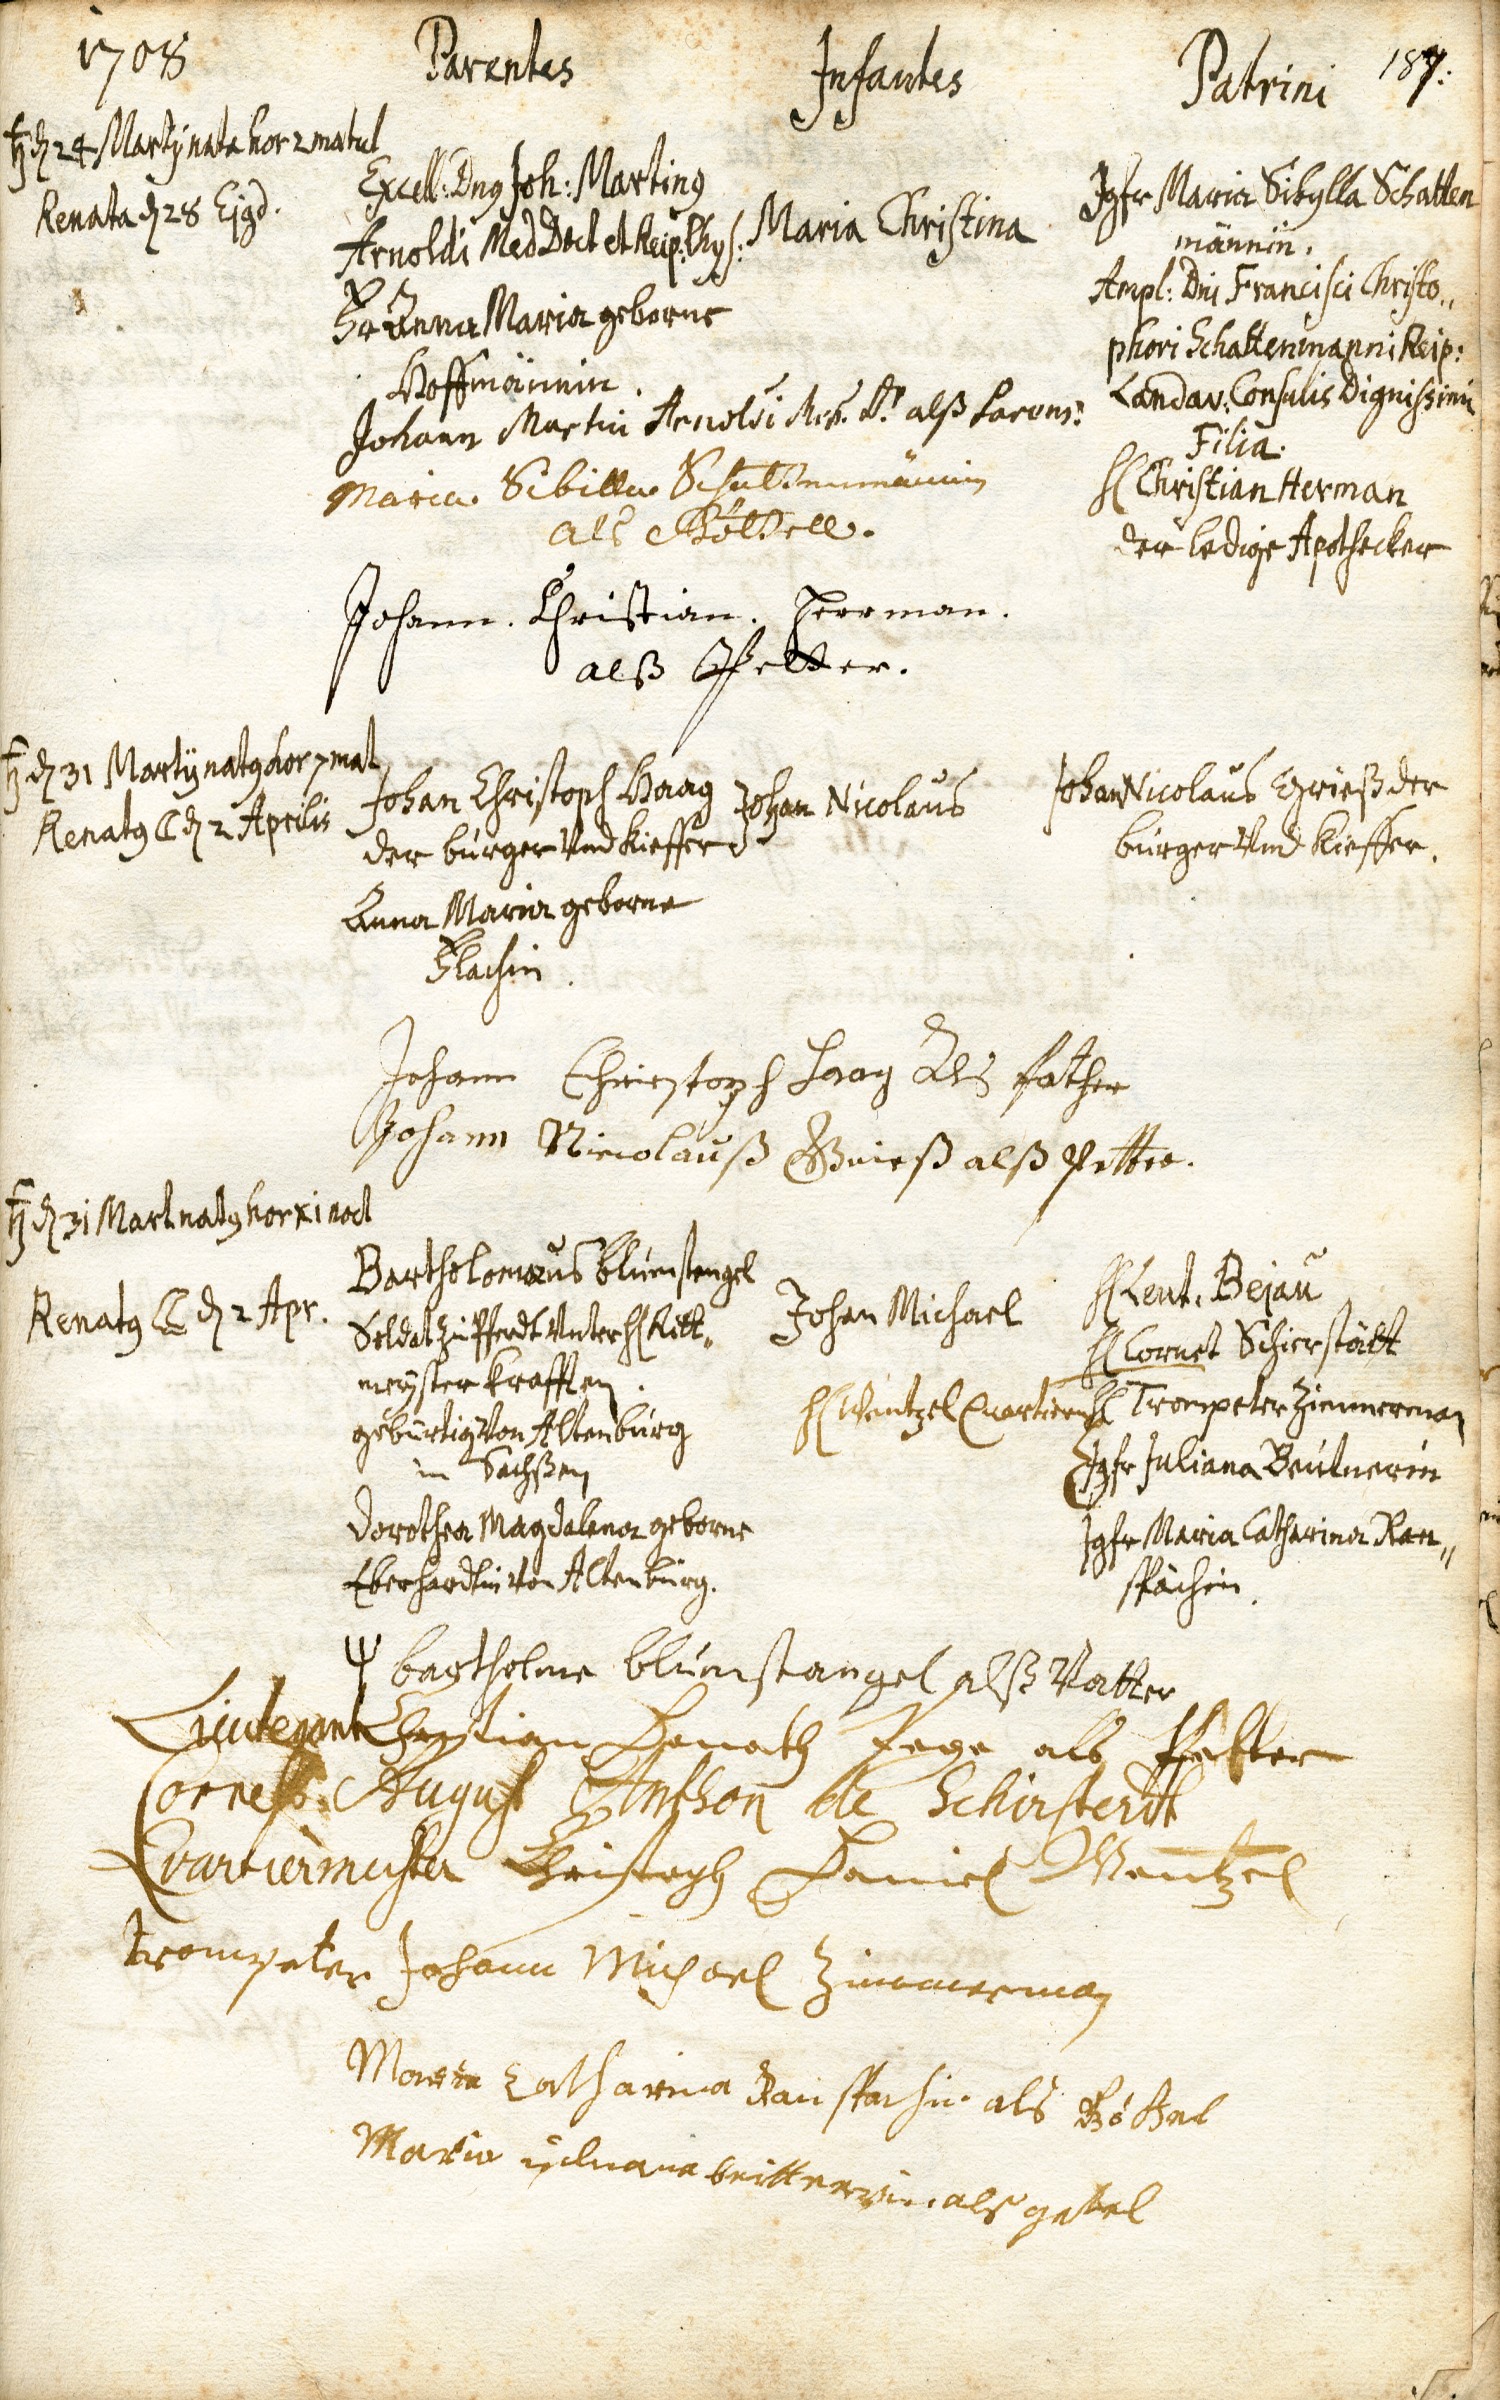 1708 Parentes Infantes Patrini 187.
♄ d 24 Martij nata hor 2 matut
Renata d 28 Ejgd.
Excell: Dng Joh: Marting
Arnoldi Med Doct et Reip: Phys:
Fr Anna Maria geborne
Hoffmännin.
Maria Christina
Jgfr Maria Sibylla Schatten
männin.
Ampl: Dni Francisci Christo„
phori Schattenmanni Reip:
Landav: Consulis Dignissimi
Filia.
H Christian Herman
der ledige Apothecker
Johann Martin Arnoldi alß
Maria Sibilla Schattenmännin
als Göttell.
Johann. Christian. Herrman.
alß Pfetter.
♄ d 31 Martij natg hor 7 mat
Renatg ☾ d 2 Aprilis
Johan Christoph Haag
der burger Vnd Kieffer
Anna Maria geborne
Flachin.
Johan Nicolaus
Johan Nicolaus Grieß der
burger Vnd Kieffer.
Johann Christoph Haag Als Father
Johann Nicolauß Grieß alß Petter.
♄ d 31 Mart natg hor xi noct
Renatg ☾ d 2 Apr.
Bartholomæus Blumstengel
Soldat zu Pferdt Vnter H Ritt„
meyster Krafften.
gebürtig Von Altenburg
in Sachßen
Dorothea Magdalena geborne
Eberhardtin Von Altenburg.
Johan Michael
H Wentzel Quartierm
H Leut. Bejau
H Cornet Schierstätt
H Trompeter Zimmerman
Jgfr Juliana Beutnerin
Jgfr Maria Catharina Ran„
spächin.
Ψ bartholme blumstangel alß Vatter
Lieutenant Christian Fege als Pfetter
Cornett August Anthon de Schirstedt
Qvartiermeister Christoph Daniel Wentzel
trompeter Johann Michael Zimmerman
Maria Catharina Ranspachin als Göttel
Maria als gettel